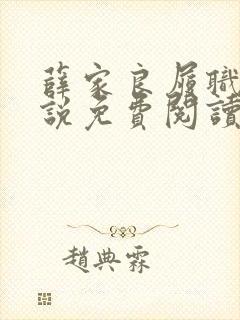 薛家良履職
說免費閱讀
趙典霖